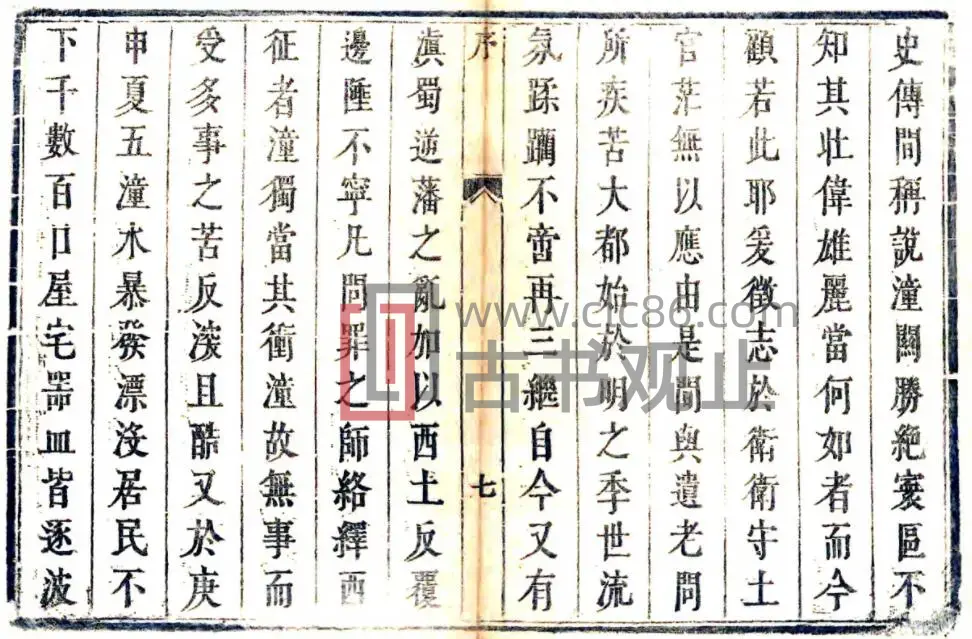 史傳間稱說潼關勝絶寰區不
知其壯偉雄麗當何如者而今
顧若此耶爰徵志於衛衛守土
官茫無以應由是間與遺老問
所疾苦大都始於明之季世流
氛蹂躪不啻再三繼自今又有
序 七
滇蜀逆藩之亂加以西土反覆
邊陲不寧凡問罪之師絡繹西
征者潼獨當其衝潼故無事而
受多事之苦反深且酷又於庚
申夏五潼水暴發漂沒居民不
下千數百口屋宅器皿皆逐波
古书观止